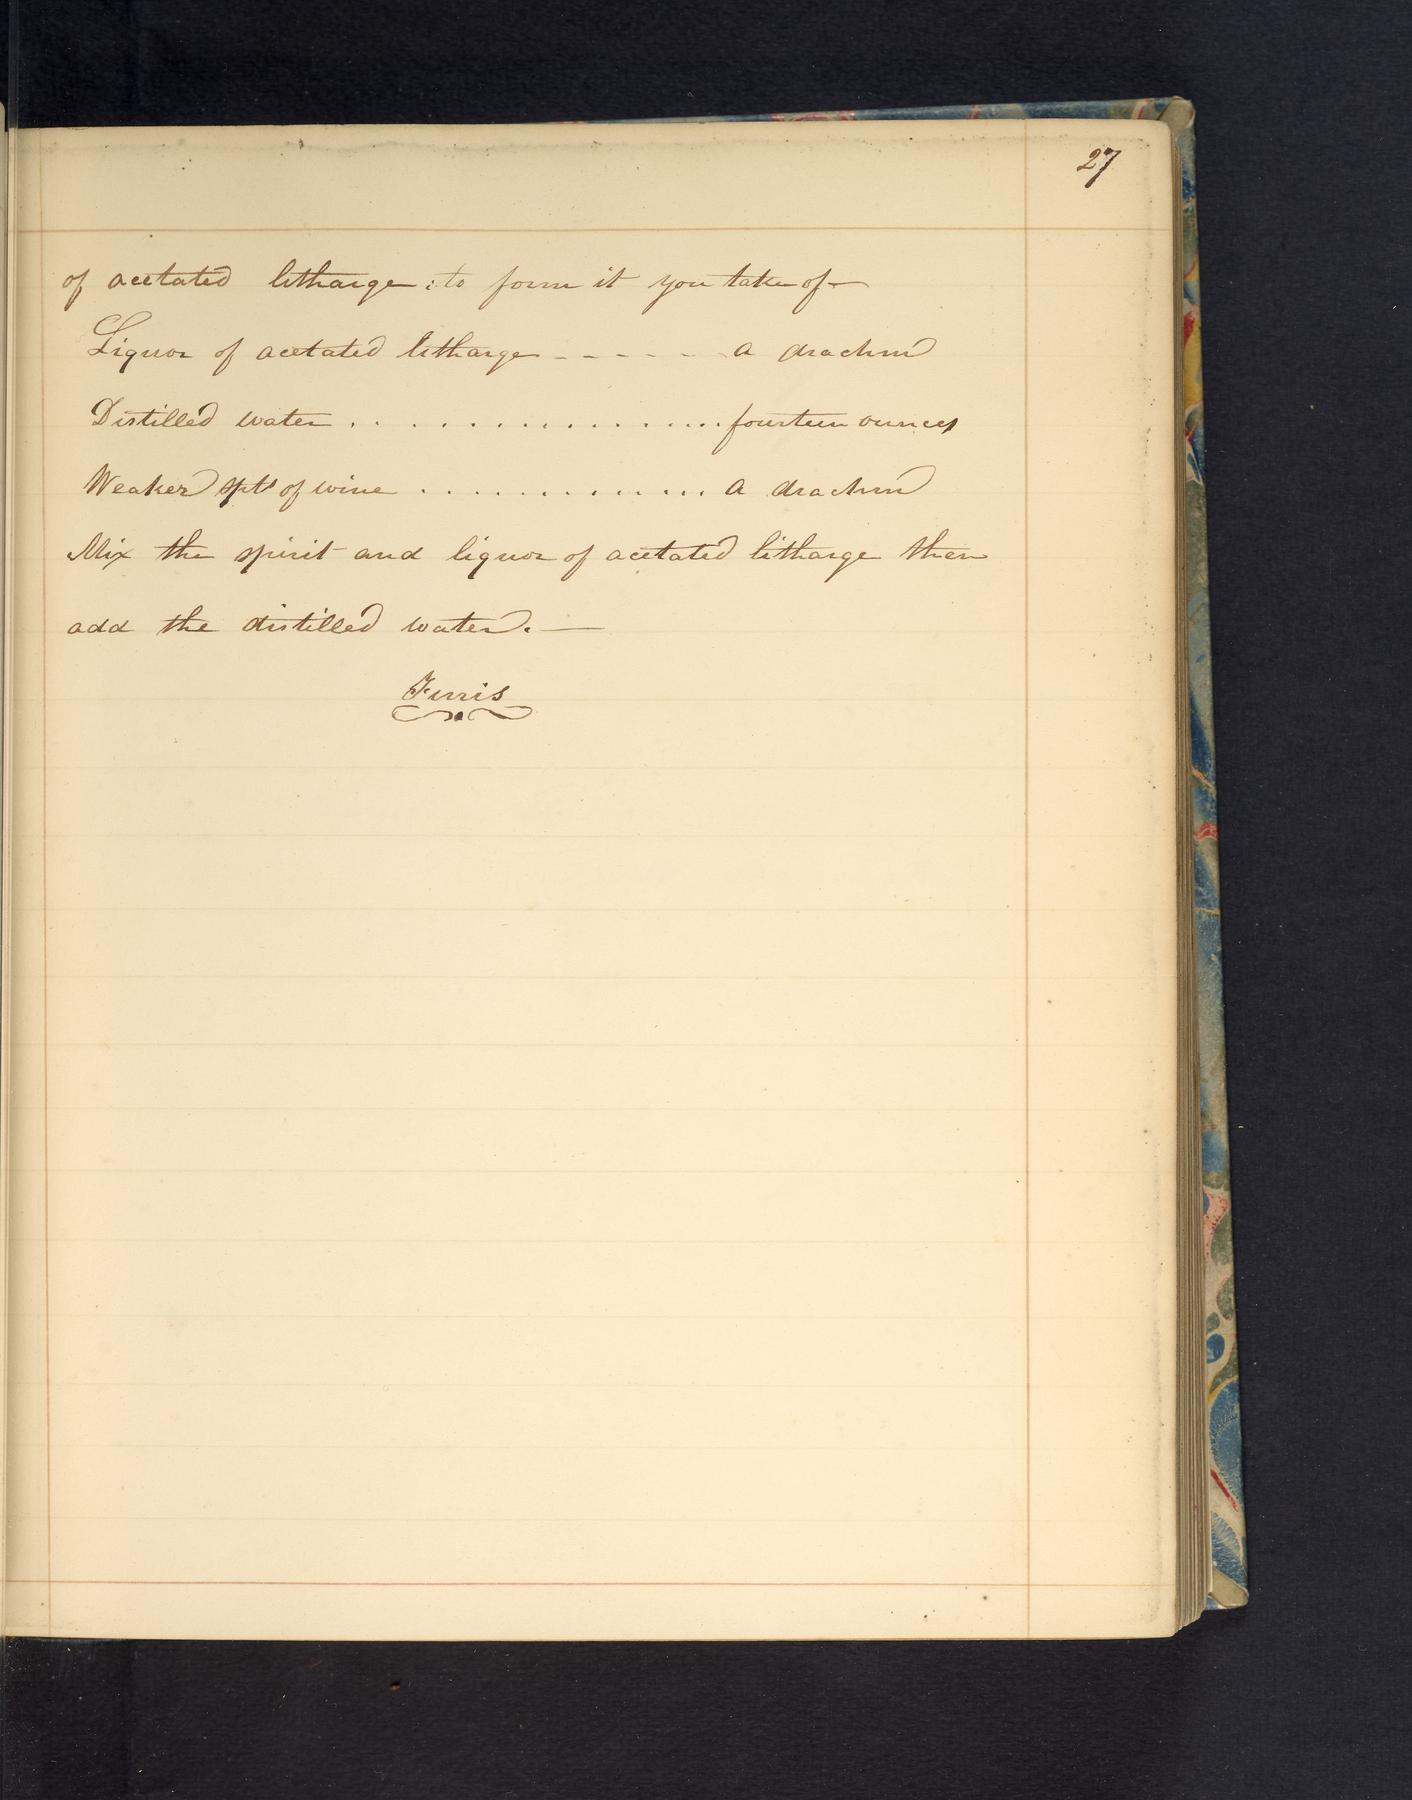 27
of acetated litharge; to form it you take of—
Liquor of acetated litharge - - - - - - a drachm
Distilled water . . . . . . . . . . . . . . . . . . fourteen ounces
Weaker spts of wine . . . . . . . . . . . . . a drachm
Mix the spirit and liquor of acetated litharge then
add the distilled water. —
Finis